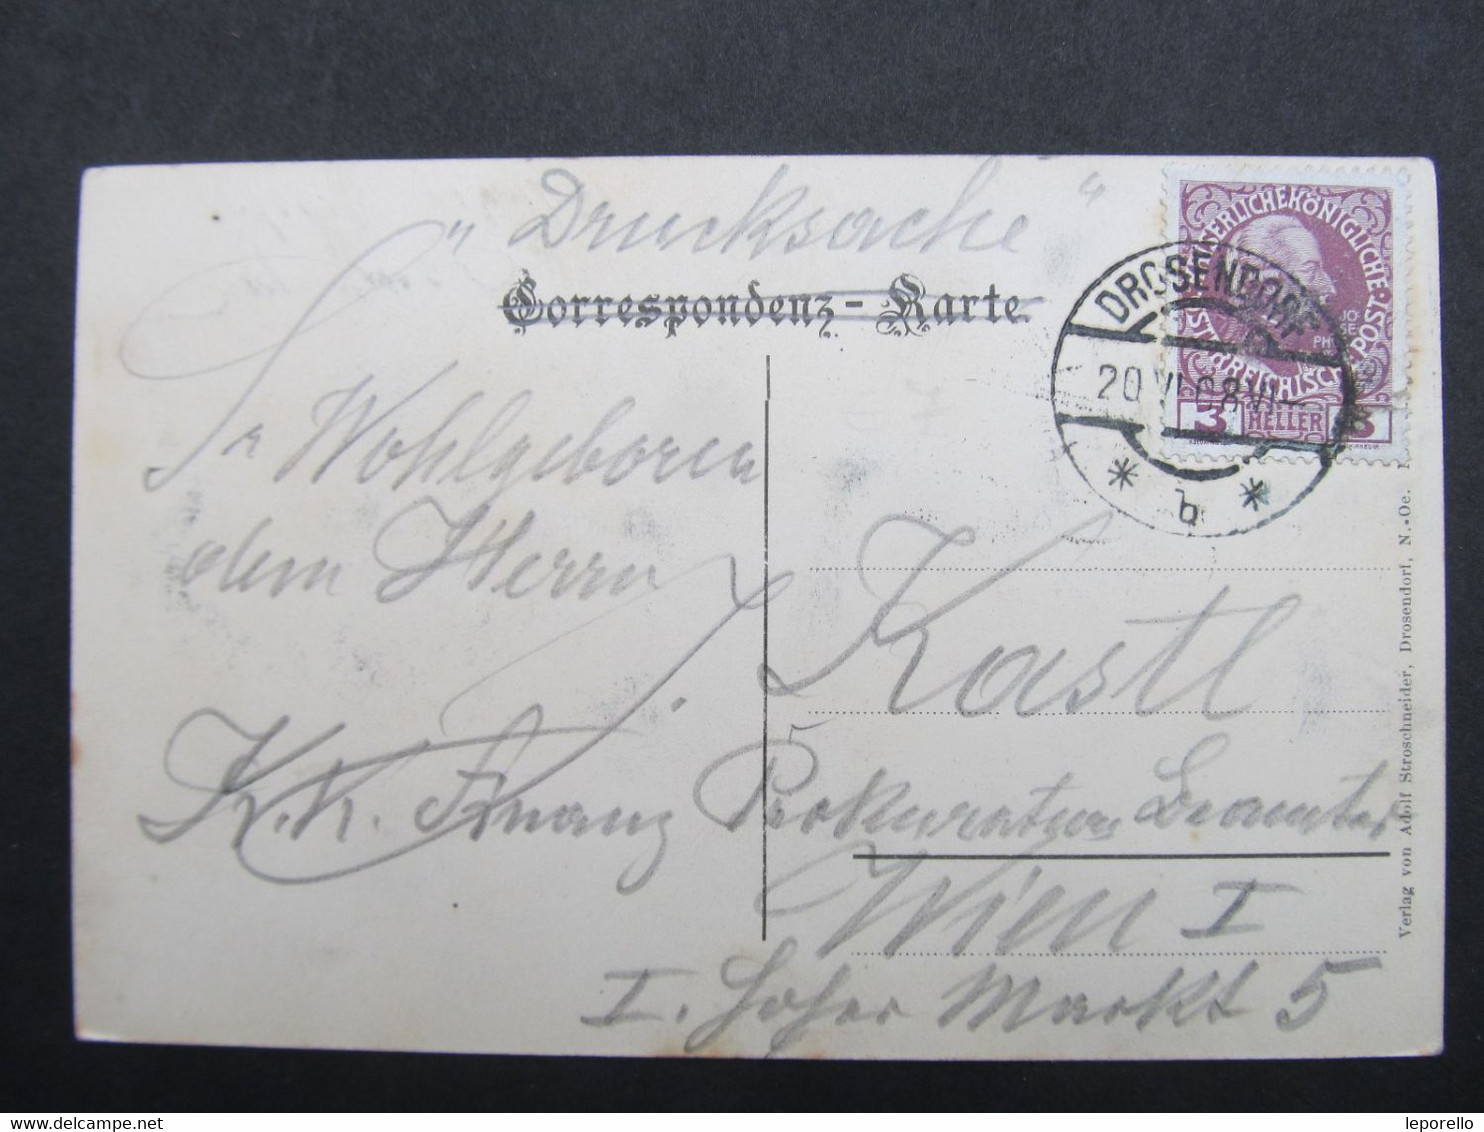 „Drucksache“
Correspondenz-Karte
Sr Wohlgeboren
dem Herrn
J. Kastl
K. K. Finanz Prokuraturs Beamter
Wien I
I. Hoher Markt 5
KAISERLICHE KÖNIGLICHE
ÖSTERREICHISCHE POST
3 HELLER 3
DROSENDORF
20 VI 08 VI-
* b *
Verlag von Adolf Stroschneider, Drosendorf, N.-Oe.
leporello